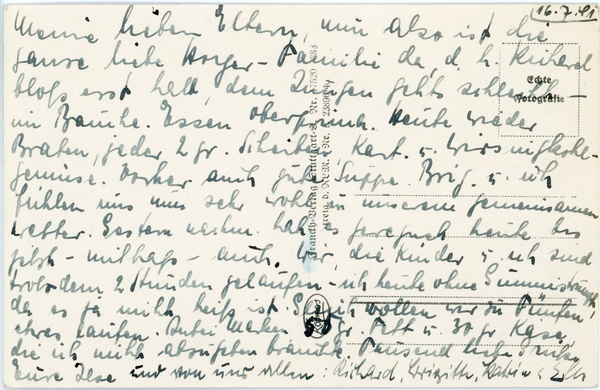 16.7.41
Meine lieben Eltern, nun also ist die
ganze liebe Horger-Familie da d. h. Richard
bloß erst halb, dem Jungen gehts schlecht
im Bauche. Essen Obergünzb. Heute wieder
Braten, jeder 2 gr. Scheiben, Kart. u. Wirsingkohl-
gemüse. Vorher auch gute Suppe. Brig. u. ich
fühlen uns nun sehr wohl in unserem gemeinsamen
wetter. Gestern nachm. hat es geregnet heute bis
jetzt - mittags - auch. Wir, die Kinder u. ich sind
trotzdem 2 Stunden gelaufen - ich heute ohne Gummistrümpfe,
da es ja nicht heiß ist. wollen wir zu Fünfen
etwas laufen. Anbei Marken gr. Fett u. 30 gr Käse,
die ich nicht abzugeben brauchte. Tausend liebe Grüße
Eure Ilse und von uns allen: Richard, Brigitte, Katrin u. Elb
Echte
Fotografie
Franckh-Verlag Stuttgart-